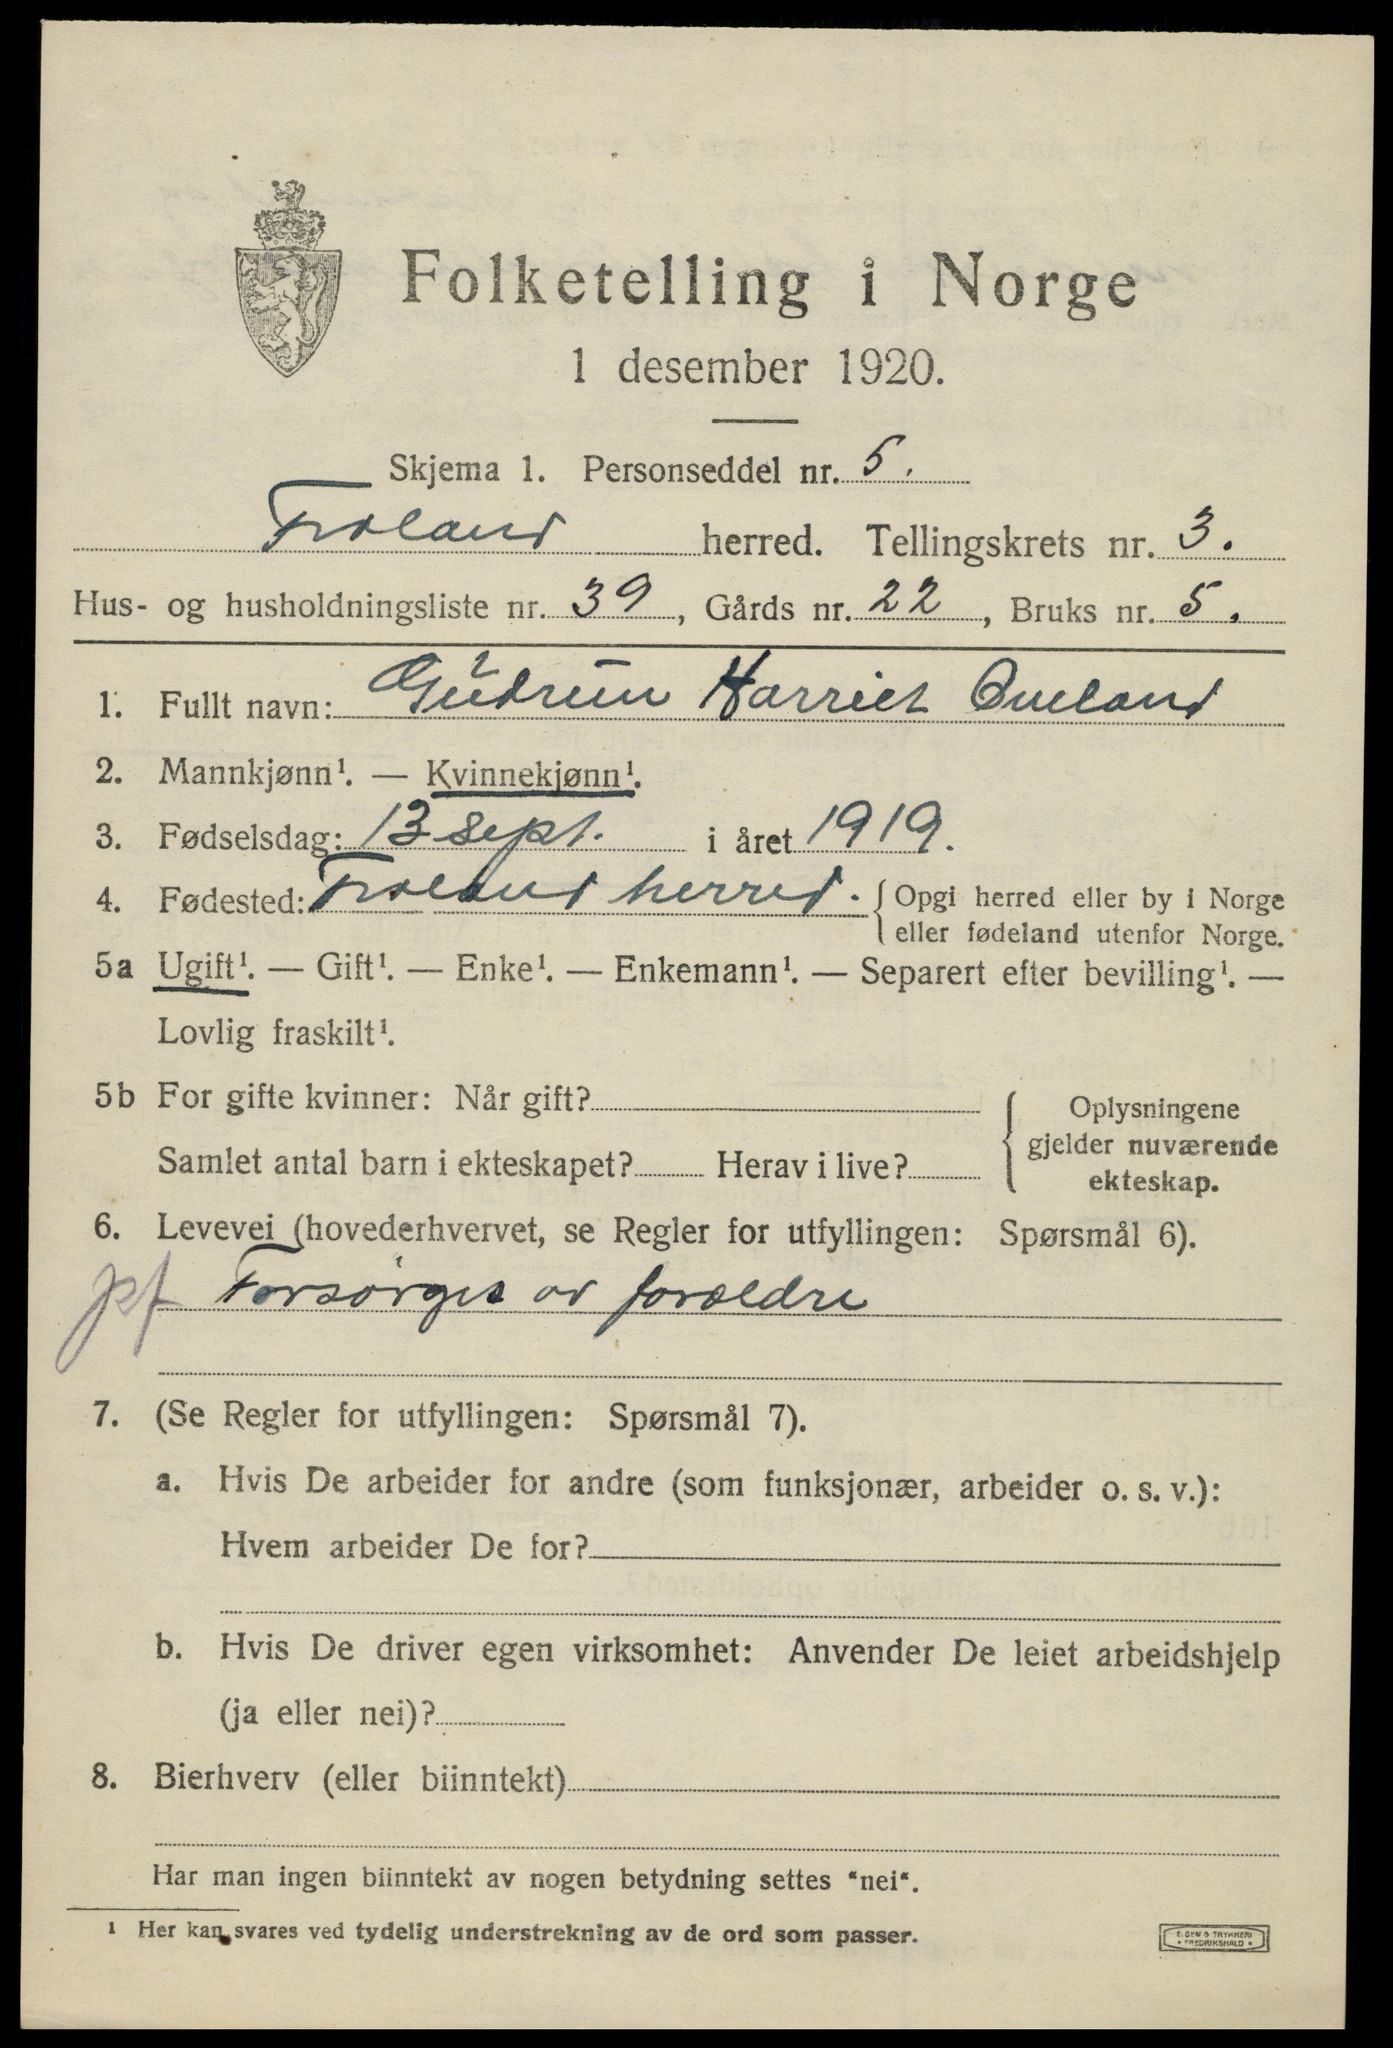 Folketelling i Norge
1 desember 1920.
Skjema 1. Personseddel nr. 5.
Froland herred. Tellingskrets nr. 3.
Hus- og husholdningsliste nr. 39, Gårds nr. 22, Bruks nr. 5.
1. Fullt navn: Gudrun Harriet Oveland
2. Mannkjønn¹. — Kvinnekjønn¹.
3. Fødselsdag: 13 sept. i året 1919.
4. Fødested: Froland herred. { Opgi herred eller by i Norge
eller fødeland utenfor Norge.
5a Ugift¹. — Gift¹. — Enke¹. — Enkemann¹. — Separert efter bevilling¹. —
Lovlig fraskilt¹.
5b For gifte kvinner: Når gift?
Samlet antal barn i ekteskapet? Herav i live?
{ Oplysningene
gjelder nuværende
ekteskap.
6. Levevei (hovederhvervet, se Regler for utfyllingen: Spørsmål 6).
pf Forsørges av forældre
7. (Se Regler for utfyllingen: Spørsmål 7).
a. Hvis De arbeider for andre (som funksjonær, arbeider o. s. v.):
Hvem arbeider De for?
b. Hvis De driver egen virksomhet: Anvender De leiet arbeidshjelp
(ja eller nei)?
8. Bierhverv (eller biinntekt)
Har man ingen biinntekt av nogen betydning settes "nei".
¹ Her kan svares ved tydelig understrekning av de ord som passer.
TRYKKERI
• FREDRIKSHALD •